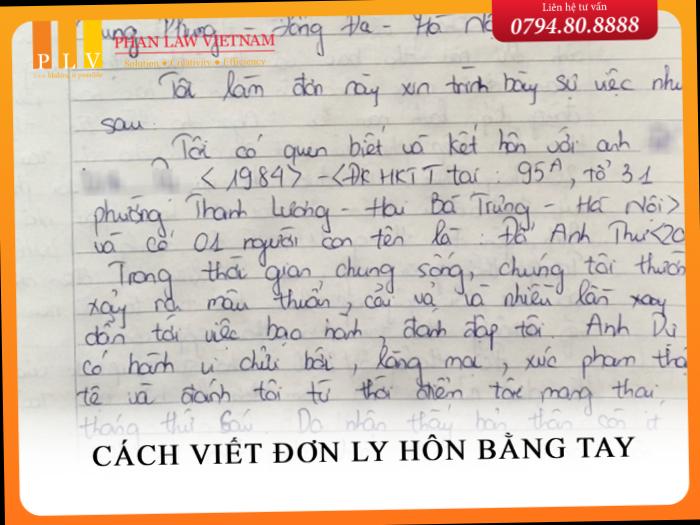 Liên hệ tư vấn
0794.80.8888
PLV
Making it possible
PHAN LAW VIETNAM
Solution Creativity Efficiency
Phụng - Đống Đa - Hà Nội
Tôi làm đơn này xin trình bày sự việc như
sau:
Tôi có quen biết và kết hôn với anh
<1984> - <ĐK HKTT tại : 95A, tổ 31
phường Thanh Lương - Hai Bà Trưng - Hà Nội>
và có 01 người con tên là : Đỗ Anh Thư <20
Trong thời gian chung sống, chúng tôi thườn
xảy ra mâu thuẫn, cãi vã và nhiều lần xảy
dẫn tới việc bạo hành, đánh đập tôi. Anh Dự
có hành vi chửi bới, lăng mạ, xúc phạm
tệ và đánh tôi từ thời điểm tôi mang thai
tháng thứ sáu. Do nhận thấy bản thân còn ít
CÁCH VIẾT ĐƠN LY HÔN BẰNG TAY